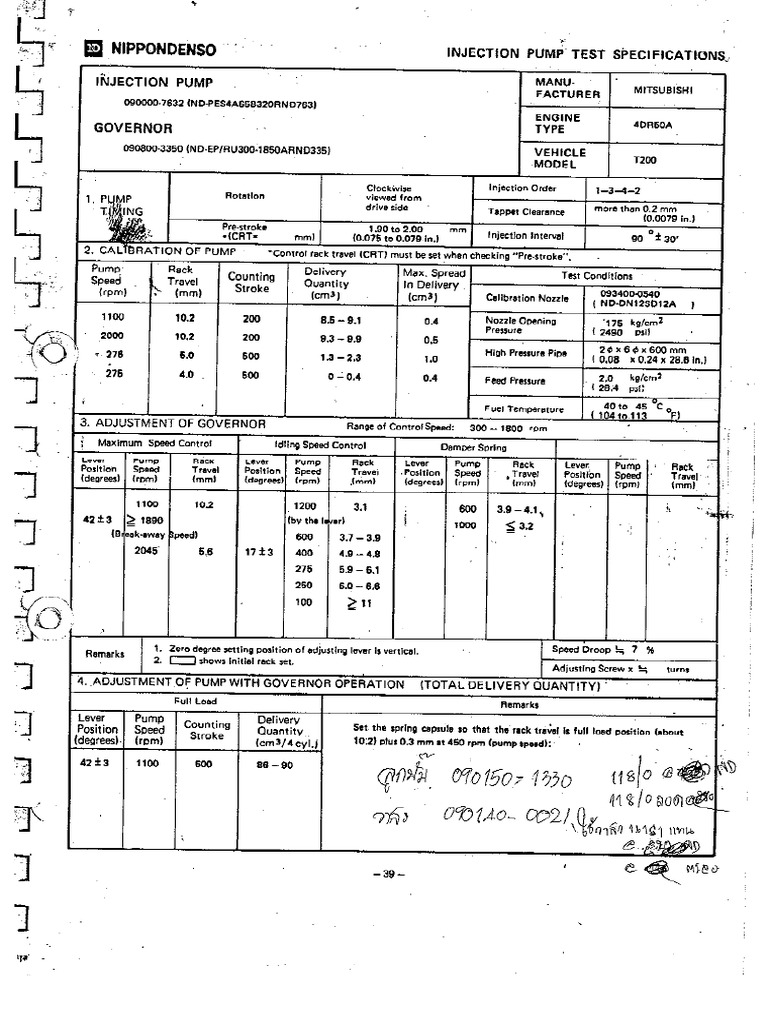 ND NIPPONDENSO
INJECTION PUMP TEST SPECIFICATIONS
INJECTION PUMP
090000-7632 (ND-PES4A65B320RND763)
GOVERNOR
090800-3350 (ND-EP/RU300-1850ARND335)
MANU-
FACTURER
MITSUBISHI
ENGINE
TYPE
4DR50A
VEHICLE
MODEL
T200
1. PUMP
TIMING
Rotation
Clockwise
viewed from
drive side
Injection Order
1-3-4-2
Tappet Clearance
more than 0.2 mm
(0.0079 in.)
Pre-stroke
*(CRT= mm)
1.90 to 2.00 mm
(0.075 to 0.079 in.)
Injection Interval
90° ± 30'
2. CALIBRATION OF PUMP *Control rack travel (CRT) must be set when checking "Pre-stroke".
Pump Speed (rpm) Rack Travel (mm) Counting Stroke Delivery Quantity (cm3) Max. Spread In Delivery (cm3)
1100 10.2 200 8.5 – 9.1 0.4
2000 10.2 200 9.3 – 9.9 0.5
275 5.0 500 1.3 – 2.3 1.0
275 4.0 500 0 – 0.4 0.4
Test Conditions
Calibration Nozzle 093400-0540
( ND-DN12SD12A )
Nozzle Opening Pressure 175 kg/cm2
( 2490 psi)
High Pressure Pipe 2φ x 6φ x 600 mm
( 0.08 x 0.24 x 28.6 in.)
Feed Pressure 2.0 kg/cm2
( 28.4 psi)
Fuel Temperature 40 to 45 °C
( 104 to 113 °F)
3. ADJUSTMENT OF GOVERNOR Range of Control Speed: 300 – 1800 rpm
Maximum Speed Control Idling Speed Control Damper Spring
Lever Position (degrees) Pump Speed (rpm) Rack Travel (mm) Lever Position (degrees) Pump Speed (rpm) Rack Travel (mm) Lever Position (degrees) Pump Speed (rpm) Rack Travel (mm) Lever Position (degrees) Pump Speed (rpm) Rack Travel (mm)
1100 10.2 1200 3.1 600 3.9 – 4.1
42 ± 3 ≧ 1890 (by the lever) 1000 ≦ 3.2
(Break-away Speed) 600 3.7 – 3.9
2045 5.6 17 ± 3 400 4.9 – 4.8
275 5.9 – 6.1
250 6.0 – 6.6
100 ≧ 11
Remarks
1. Zero degree setting position of adjusting lever is vertical.
2. shows initial rack set.
Speed Droop ≒ 7 %
Adjusting Screw x ≒ turns
4. ADJUSTMENT OF PUMP WITH GOVERNOR OPERATION (TOTAL DELIVERY QUANTITY)
Full Load
Remarks
Lever Position (degrees) Pump Speed (rpm) Counting Stroke Delivery Quantity (cm3/4 cyl.)
42 ± 3 1100 500 86 – 90
Set the spring capsule so that the rack travel is full load position (about
10.2) plus 0.3 mm at 450 rpm (pump speed):
ลูกปั๊ม 090150-1330
วาล์ว 090140-0021
– 39 –